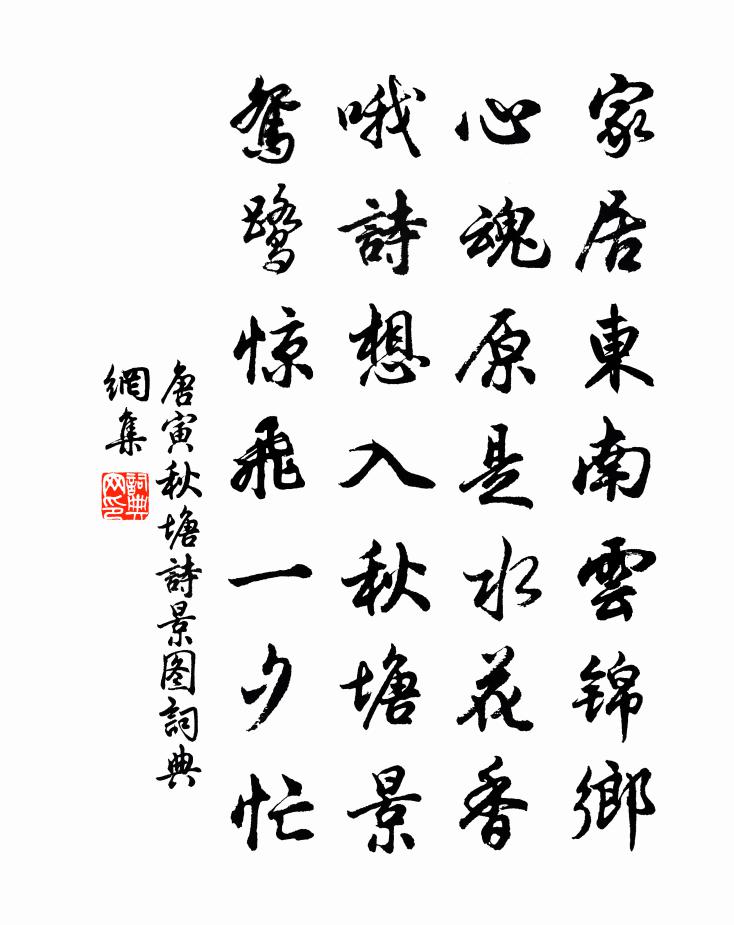 家居東南雲錦鄉
心魂原是水花香
哦詩想入秋塘景
鴛鷺惊飛一夕忙
唐寅秋塘詩景图詞典
網集
詞典
网印